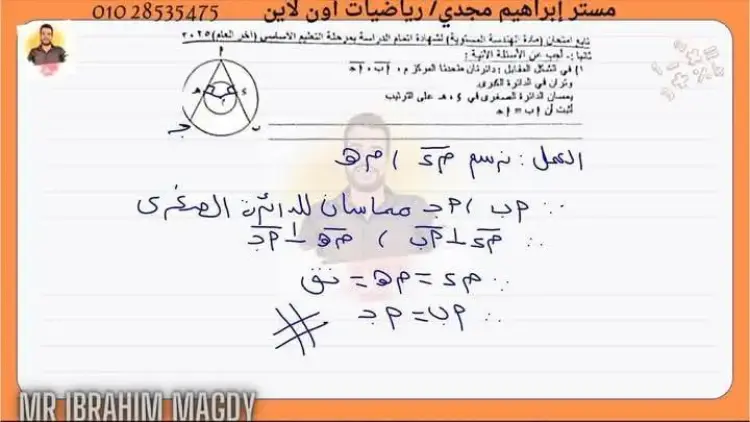 مستر إبراهيم مجدي/ رياضيات اون لاين 010 28535475
تابع امتحان (مادة الهندسة المستوية) لشهادة اتمام الدراسة بمرحلة التعليم الأساسي (آخر العام) ٢٠٢٥
ثانيا :- أجب عن الأسئلة الآتية :
١) في الشكل المقابل : دائرتان متحدتا المركز م ، أب ، أجـ
وتران في الدائرة الكبرى
يمسان الدائرة الصغرى في د ، هـ على الترتيب
أثبت أن أب = أجـ
أ
هـ
د
م
جـ
ب
العمل : نرسم مد ، مهـ
∵ أب ، أجـ مماسان للدائرة الصغرى
∴ مد ⊥ أب ، مهـ ⊥ أجـ
∵ مد = مهـ = نق
∴ أب = أجـ
MR IBRAHIM MAGDY